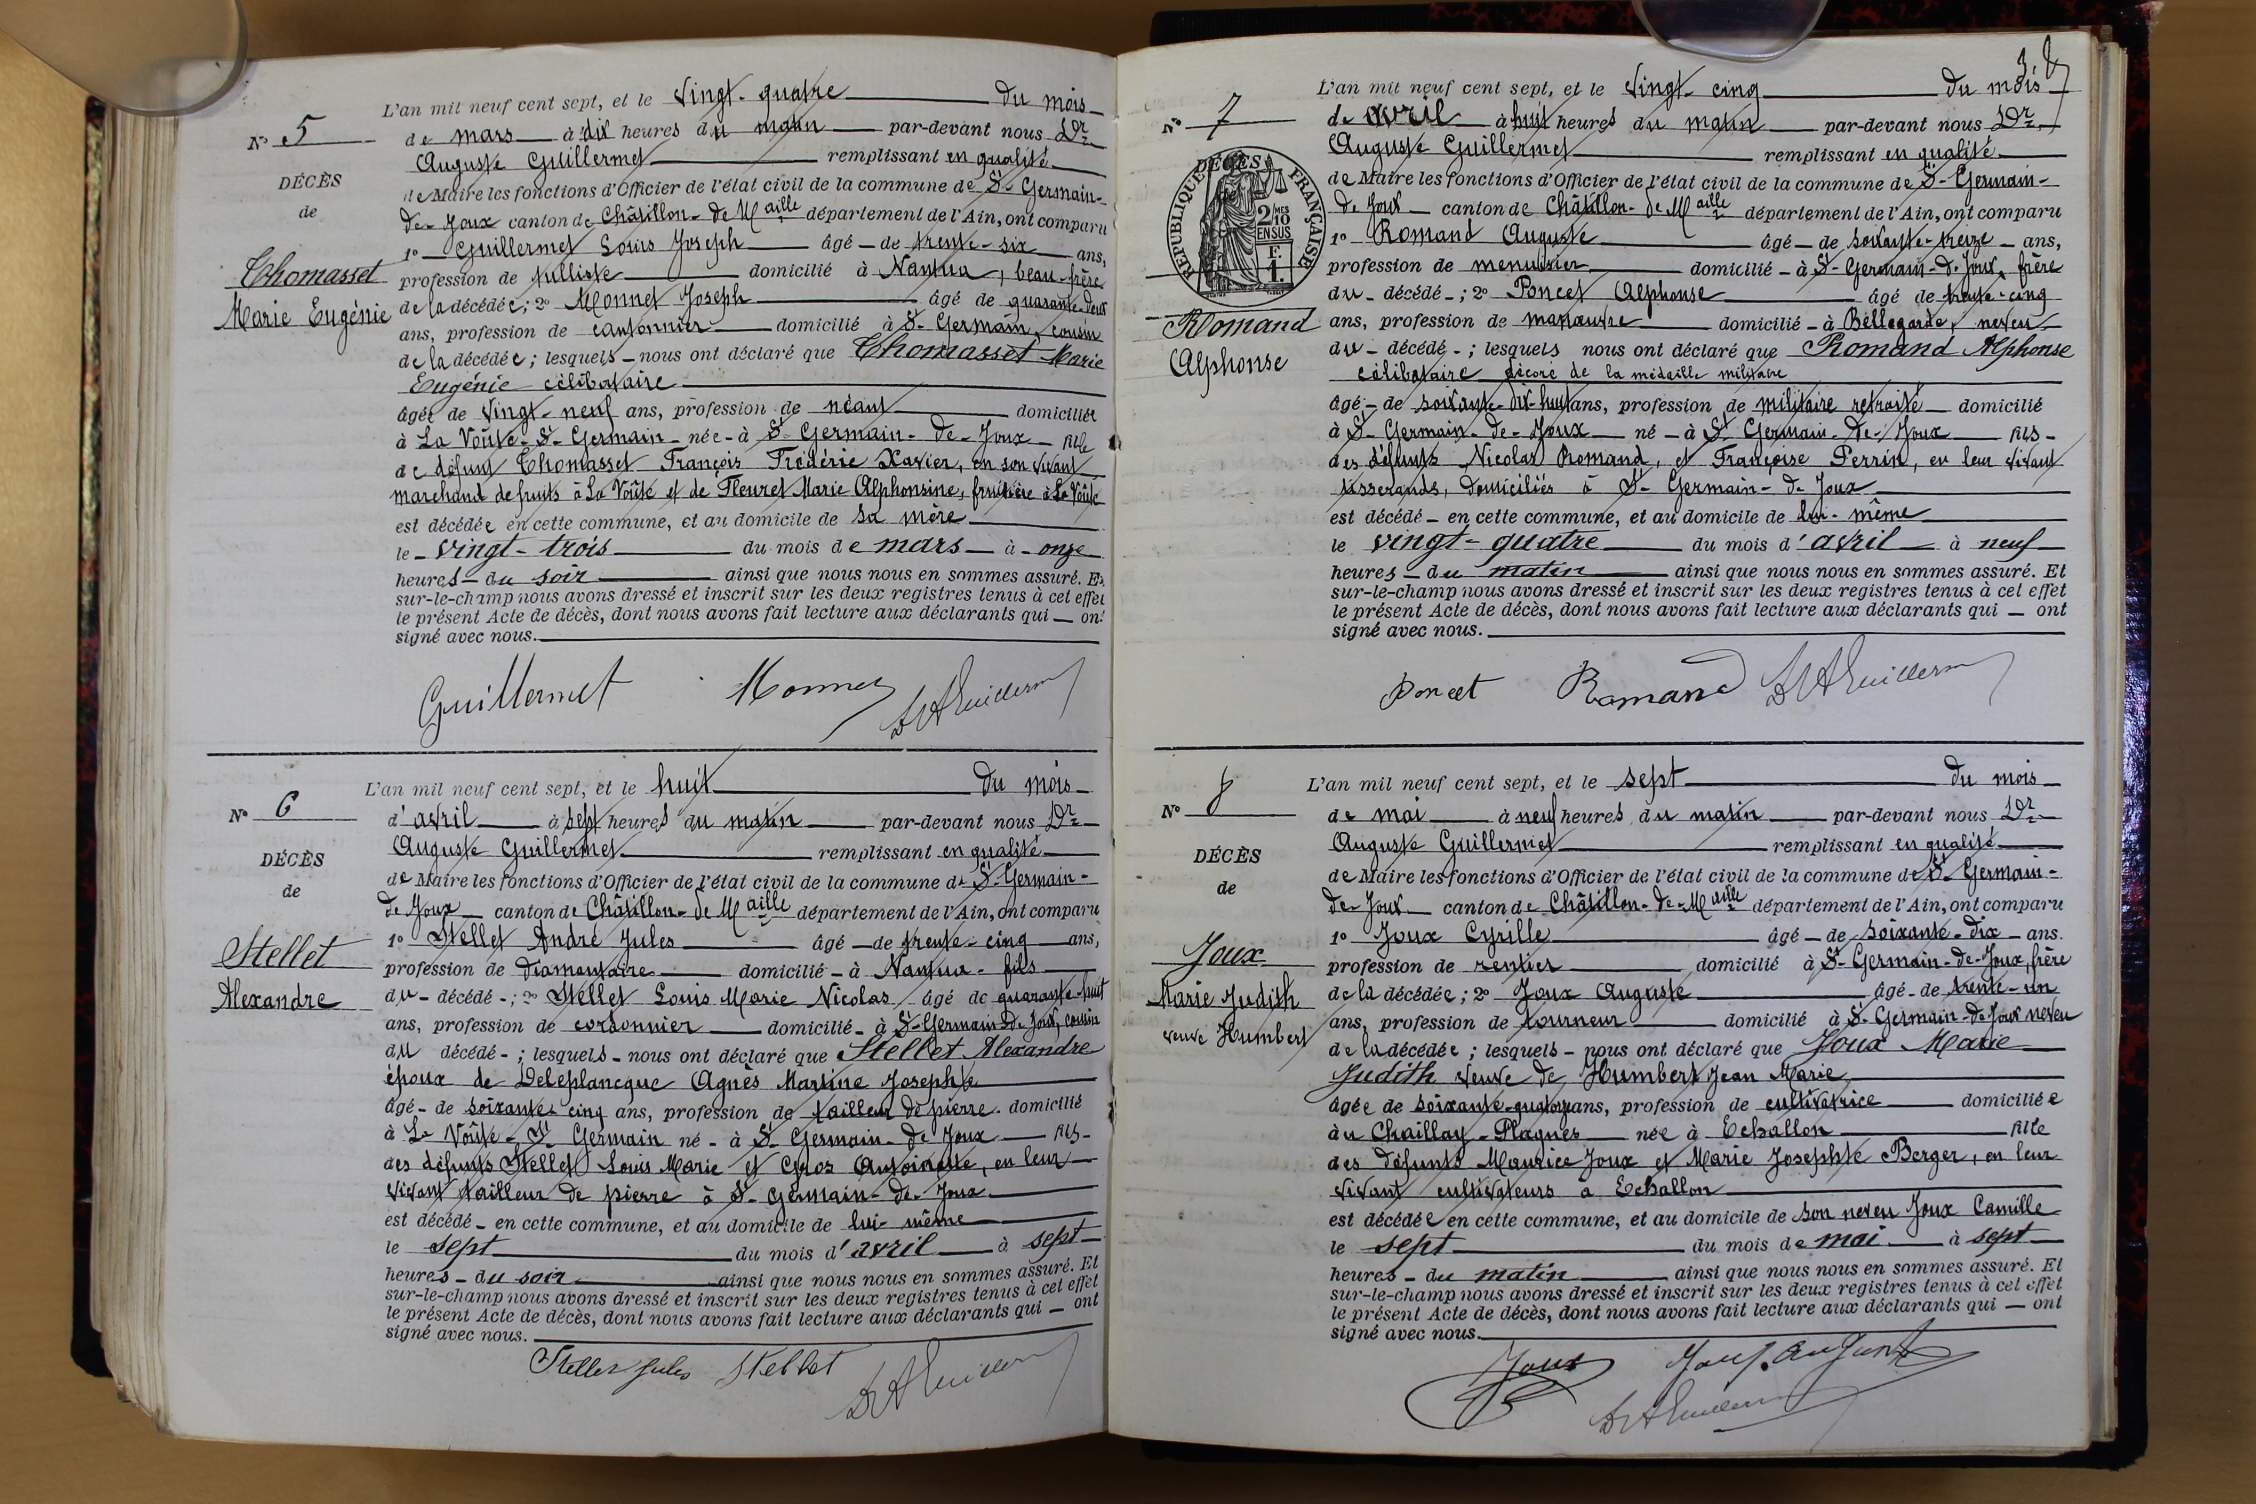 L'an mil neuf cent sept, et le vingt-quatre du mois
N° 5
de mars à dix heures du matin par-devant nous Dr
Auguste Guillermet remplissant en qualité
DÉCÈS
de Maire les fonctions d'Officier de l'état civil de la commune de St-Germain-
de
de-Joux canton de Châtillon-de-Maille département de l'Ain, ont comparu
1° Guillermet Louis Joseph âgé de trente-six ans,
Thomasset
profession de tulliste domicilié à Nantua, beau-frère
Marie Eugénie
de la décédée; 2° Monnet Joseph âgé de quarante-deux
ans, profession de cantonnier domicilié à St-Germain, cousin
de la décédée; lesquels nous ont déclaré que Thomasset Marie
Eugénie célibataire
âgée de vingt-neuf ans, profession de néant domiciliée
à La Voûte-St-Germain née à St-Germain-de-Joux fille
de défunt Thomasset François Frédéric Xavier, en son vivant
marchand de fruits à La Voûte et de Fleuret Marie Alphonsine, fruitière à La Voûte
est décédée en cette commune, et au domicile de sa mère
le vingt-trois du mois de mars à onze
heures du soir ainsi que nous nous en sommes assuré. Et
sur-le-champ nous avons dressé et inscrit sur les deux registres tenus à cet effet
le présent Acte de décès, dont nous avons fait lecture aux déclarants qui ont
signé avec nous.
Guillermet Monnet Dr A Guillerm
L'an mil neuf cent sept, et le huit du mois
N° 6
d'avril à sept heures du matin par-devant nous Dr
Auguste Guillermet remplissant en qualité
DÉCÈS
de Maire les fonctions d'Officier de l'état civil de la commune de St-Germain-
de
de Joux canton de Châtillon-de-Maille département de l'Ain, ont comparu
1° Stellet André Jules âgé de trente-cinq ans,
Stellet
profession de diamantaire domicilié à Nantua fils
Alexandre
du décédé; 2° Stellet Louis Marie Nicolas âgé de quarante-huit
ans, profession de cordonnier domicilié à St-Germain-de-Joux, cousin
du décédé; lesquels nous ont déclaré que Stellet Alexandre
époux de Deleplancque Agnès Martine Josephte
âgé de soixante-cinq ans, profession de tailleur de pierre domicilié
à La Voûte-St-Germain né à St-Germain-de-Joux fils
des défunts Stellet Louis Marie et Gros Antoinette, en leur
vivant tailleur de pierre à St-Germain-de-Joux
est décédé en cette commune, et au domicile de lui-même
le sept du mois d'avril à sept
heures du soir ainsi que nous nous en sommes assuré. Et
sur-le-champ nous avons dressé et inscrit sur les deux registres tenus à cet effet
le présent Acte de décès, dont nous avons fait lecture aux déclarants qui ont
signé avec nous.
Stellet Jules Stellet Dr A Guillerm
L'an mil neuf cent sept, et le vingt-cinq du mois
N° 7
de avril à huit heures du matin par-devant nous Dr
Auguste Guillermet remplissant en qualité
DÉCÈS
RÉPUBLIQUE FRANÇAISE
2/10MES
EN SUS
F.
1.
de Maire les fonctions d'Officier de l'état civil de la commune de St-Germain-
de Joux canton de Châtillon-de-Maille département de l'Ain, ont comparu
1° Romand Auguste âgé de soixante-treize ans,
profession de menuisier domicilié à St-Germain-de-Joux, frère
du décédé; 2° Poncet Alphonse âgé de trente-cinq
Romand
ans, profession de manœuvre domicilié à Bellegarde, neveu
Alphonse
du décédé; lesquels nous ont déclaré que Romand Alphonse
célibataire décoré de la médaille militaire
âgé de soixante-dix-huit ans, profession de militaire retraité domicilié
à St-Germain-de-Joux né à St-Germain-de-Joux fils
des défunts Nicolas Romand, et Françoise Perrin, en leur vivant
tisserands, domiciliés à St-Germain-de-Joux
est décédé en cette commune, et au domicile de lui-même
le vingt-quatre du mois d'avril à neuf
heures du matin ainsi que nous nous en sommes assuré. Et
sur-le-champ nous avons dressé et inscrit sur les deux registres tenus à cet effet
le présent Acte de décès, dont nous avons fait lecture aux déclarants qui ont
signé avec nous.
Poncet Romand Dr A Guillerm
L'an mil neuf cent sept, et le sept du mois
N° 8
de mai à neuf heures du matin par-devant nous Dr
Auguste Guillermet remplissant en qualité
DÉCÈS
de Maire les fonctions d'Officier de l'état civil de la commune de St-Germain-
de
de-Joux canton de Châtillon-de-Maille département de l'Ain, ont comparu
1° Joux Cyrille âgé de soixante-dix ans.
Joux
profession de rentier domicilié à St-Germain-de-Joux, frère
Marie Judith
de la décédée; 2° Joux Auguste âgé de trente-un
ans, profession de tourneur domicilié à St-Germain-de-Joux neveu
veuve Humbert
de la décédée; lesquels nous ont déclaré que Joux Marie
Judith veuve de Humbert Jean Marie
âgée de soixante-quatorze ans, profession de cultivatrice domiciliée
au Chaillay-Plagnes née à Echallon fille
des défunts Maurice Joux et Marie Josephte Berger, en leur
vivant cultivateurs à Echallon
est décédée en cette commune, et au domicile de son neveu Joux Camille
le sept du mois de mai à sept
heures du matin ainsi que nous nous en sommes assuré. Et
sur-le-champ nous avons dressé et inscrit sur les deux registres tenus à cet effet
le présent Acte de décès, dont nous avons fait lecture aux déclarants qui ont
signé avec nous.
Joux Joux Auguste
Dr A Guillerm